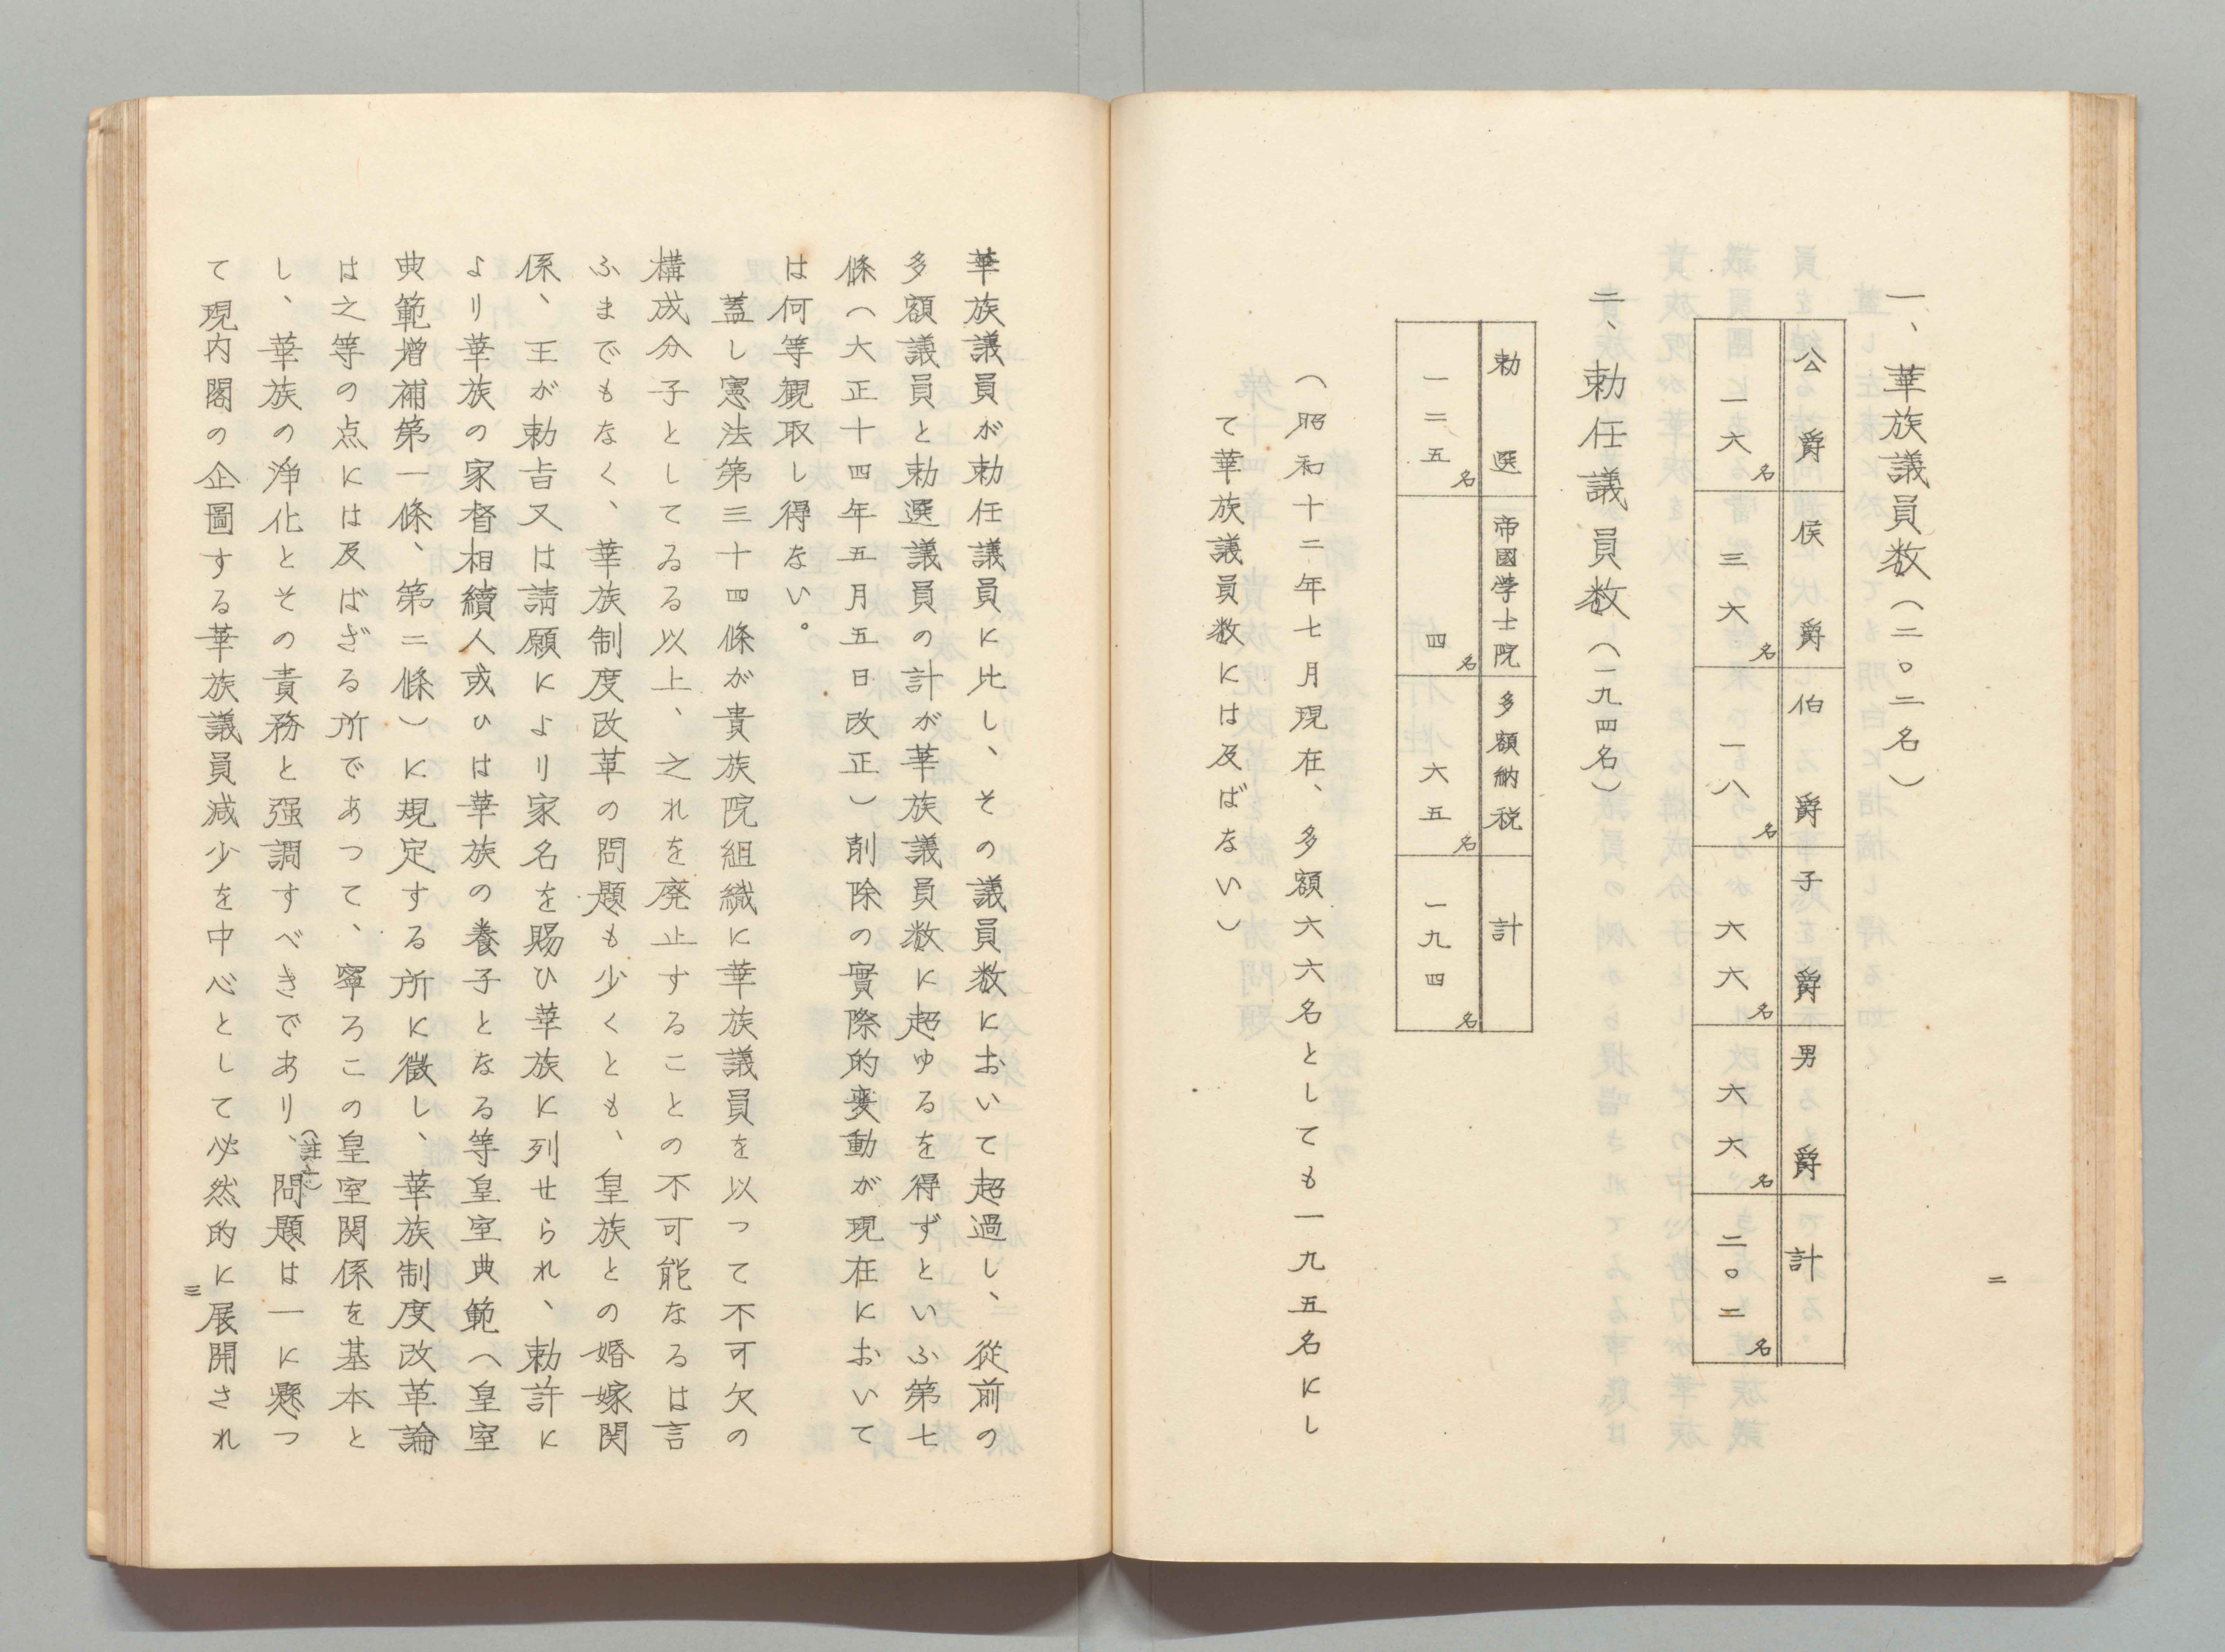 二
一、華族議員数（二〇二名）
公爵 侯爵 伯爵 子爵 男爵 計
一六名 三六名 一八名 六六名 六六名 二〇二名
二、勅任議員数（一九四名）
勅選 帝國学士院 多額納税 計
一二五名 四名 六五名 一九四名
（昭和十二年七月現在、多額六六名としても一九五名にし
て華族議員数には及ばない）
華族議員が勅任議員に比し、その議員数において超過し、従前の
多額議員と勅選議員の計が華族議員数に超ゆるを得ずといふ第七
條（大正十四年五月五日改正）削除の實際的変動が現在において
は何等観取し得ない。
蓋し憲法第三十四條が貴族院組織に華族議員を以って不可欠の
構成分子としてゐる以上、之れを廃止することの不可能なるは言
ふまでもなく、華族制度改革の問題も少くとも、皇族との婚嫁関
係、王が勅旨又は請願により家名を賜ひ華族に列せられ、勅許に
より華族の家督相續人或ひは華族の養子となる等皇室典範（皇室
典範増補第一條、第二條）に規定する所に徴し、華族制度改革論
は之等の点には及ばざる所であって、寧ろこの皇室関係を基本と
し、華族の浄化とその責務と强調すべきであり、問題は一に懸つ
て現内閣の企圖する華族議員減少を中心として必然的に展開され
三